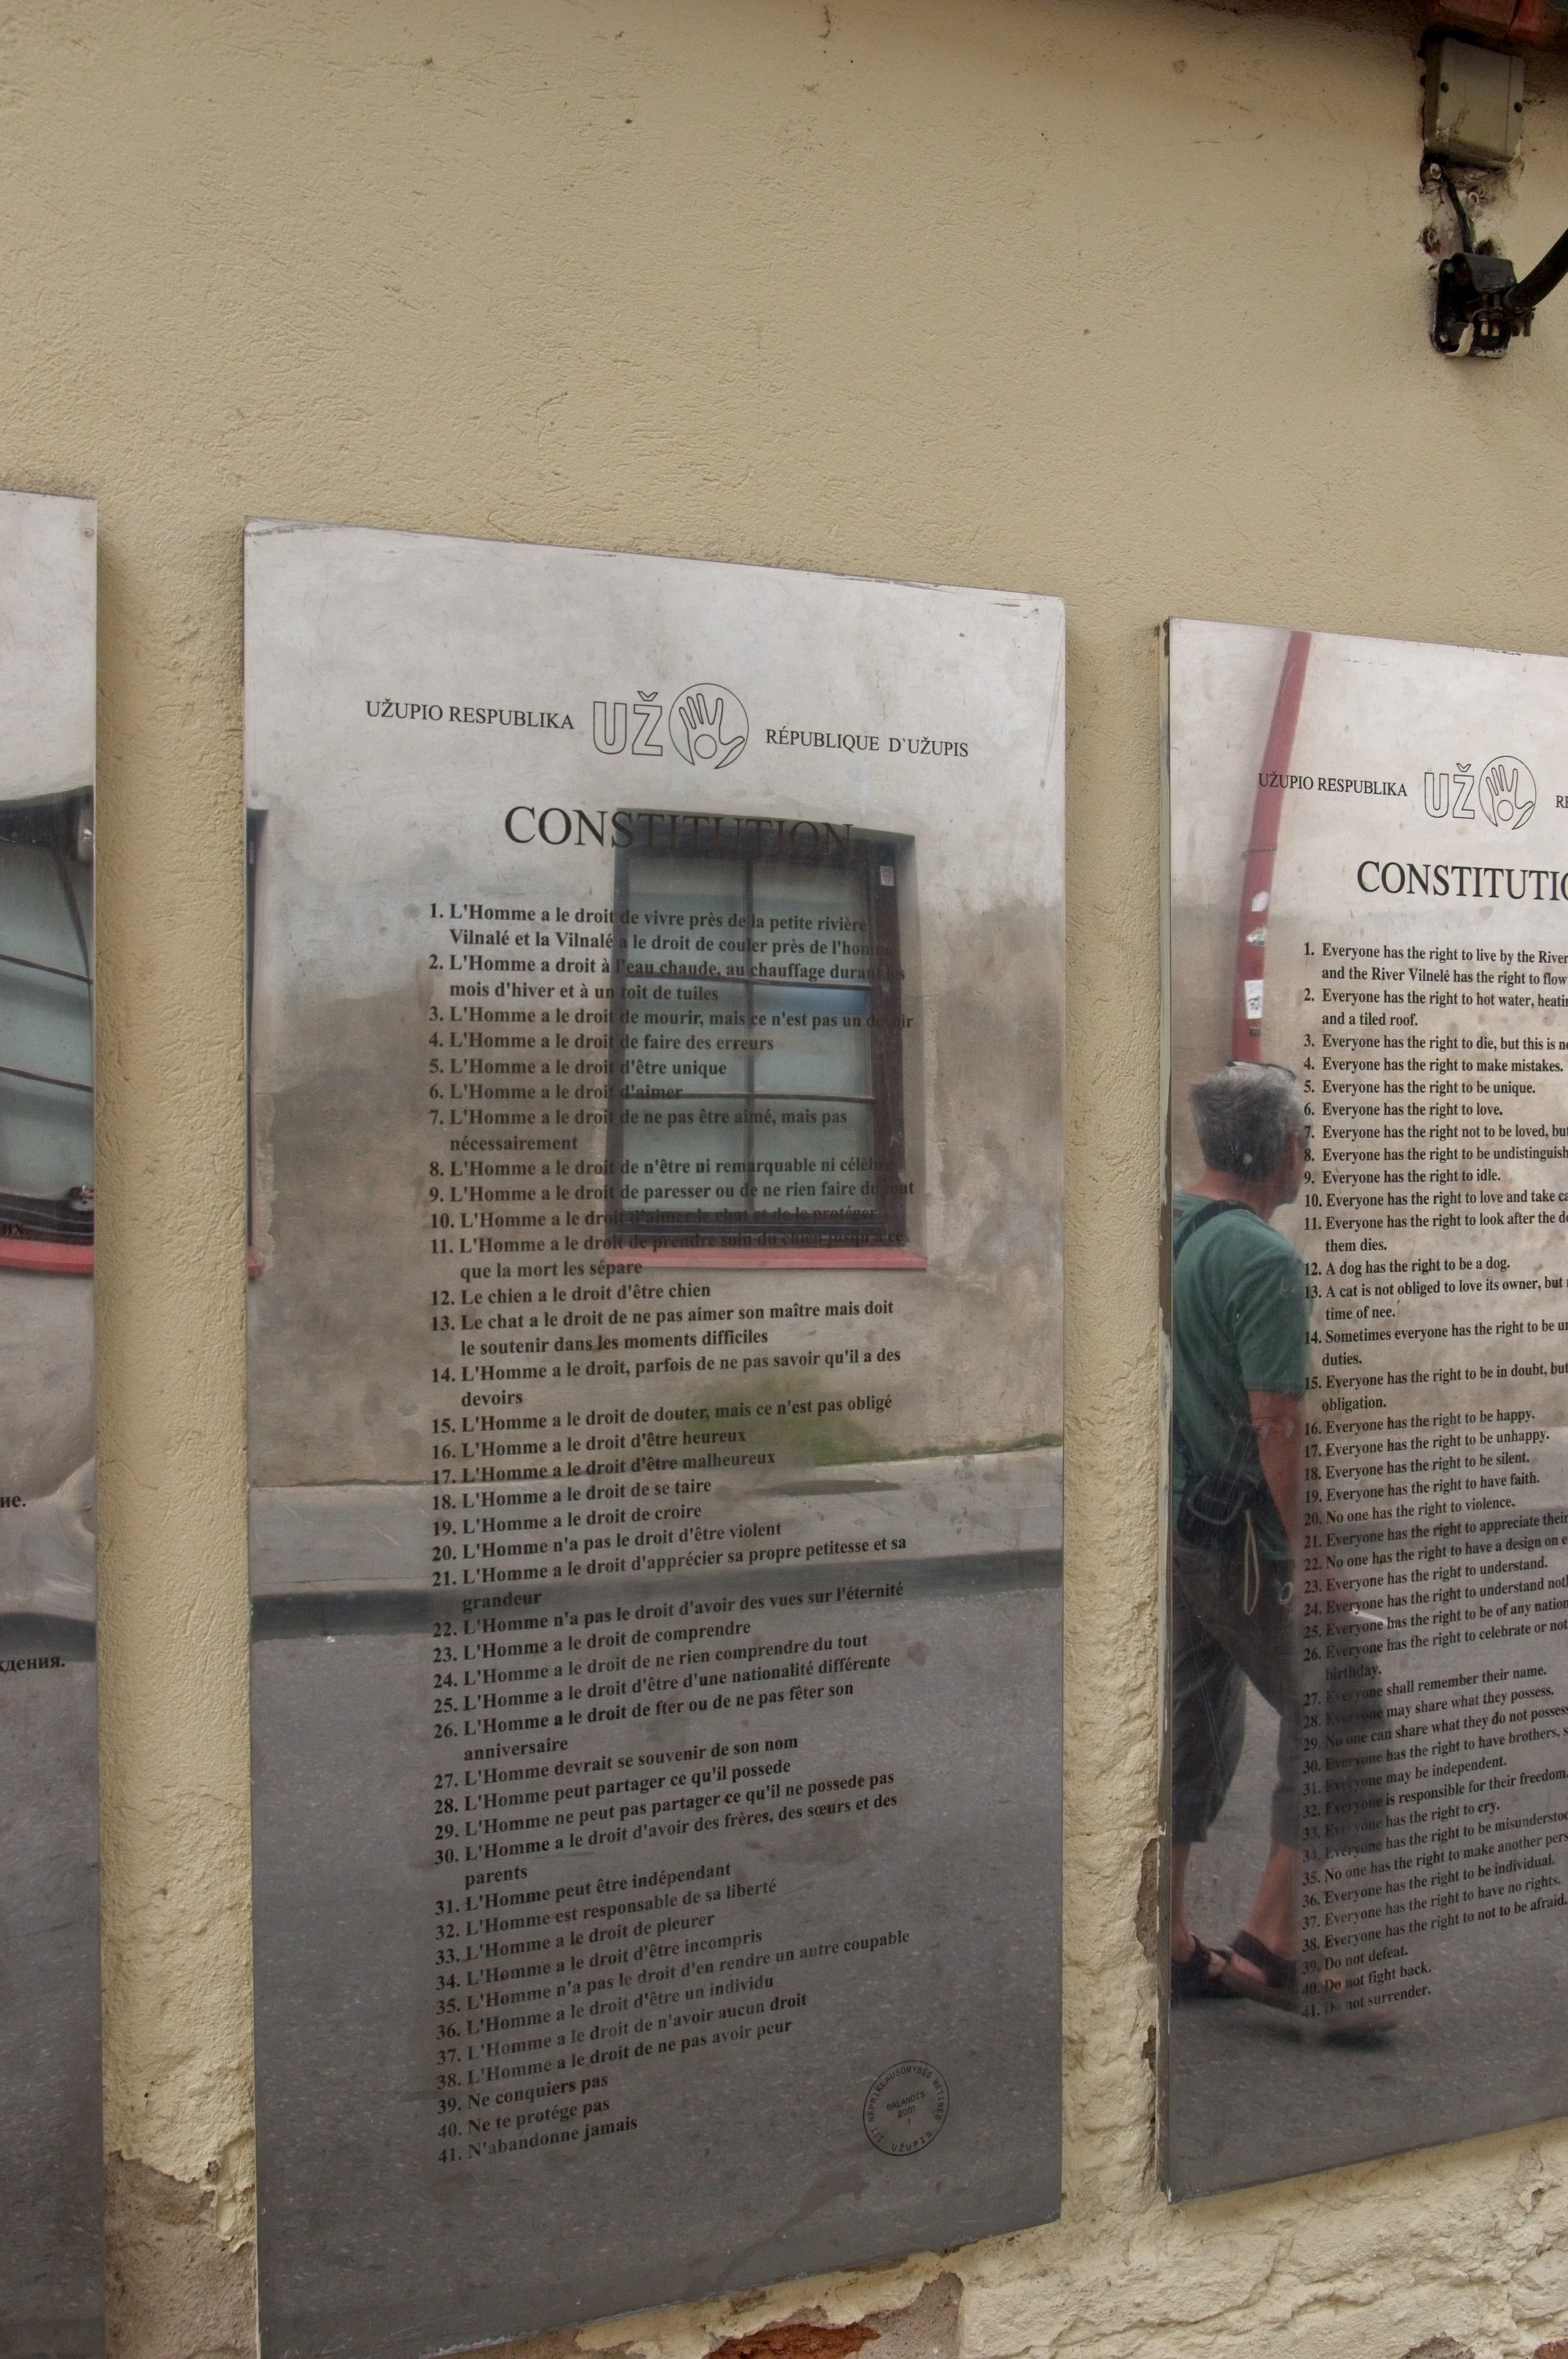 их.
ие.
ждения.
UŽUPIO RESPUBLIKA
UŽ
RÉPUBLIQUE D`UŽUPIS
CONSTITUTION
1. L'Homme a le droit de vivre près de la petite rivière
Vilnalé et la Vilnalé a le droit de couler près de l'homme
2. L'Homme a droit à l'eau chaude, au chauffage durant les
mois d'hiver et à un toit de tuiles
3. L'Homme a le droit de mourir, mais ce n'est pas un devoir
4. L'Homme a le droit de faire des erreurs
5. L'Homme a le droit d'être unique
6. L'Homme a le droit d'aimer
7. L'Homme a le droit de ne pas être aimé, mais pas
nécessairement
8. L'Homme a le droit de n'être ni remarquable ni célèbre
9. L'Homme a le droit de paresser ou de ne rien faire du tout
10. L'Homme a le droit d'aimer le chat et de le protéger
11. L'Homme a le droit de prendre soin du chien jusqu'à ce
que la mort les sépare
12. Le chien a le droit d'être chien
13. Le chat a le droit de ne pas aimer son maître mais doit
le soutenir dans les moments difficiles
14. L'Homme a le droit, parfois de ne pas savoir qu'il a des
devoirs
15. L'Homme a le droit de douter, mais ce n'est pas obligé
16. L'Homme a le droit d'être heureux
17. L'Homme a le droit d'être malheureux
18. L'Homme a le droit de se taire
19. L'Homme a le droit de croire
20. L'Homme n'a pas le droit d'être violent
21. L'Homme a le droit d'apprécier sa propre petitesse et sa
grandeur
22. L'Homme n'a pas le droit d'avoir des vues sur l'éternité
23. L'Homme a le droit de comprendre
24. L'Homme a le droit de ne rien comprendre du tout
25. L'Homme a le droit d'être d'une nationalité différente
26. L'Homme a le droit de fter ou de ne pas fêter son
anniversaire
27. L'Homme devrait se souvenir de son nom
28. L'Homme peut partager ce qu'il possede
29. L'Homme ne peut pas partager ce qu'il ne possede pas
30. L'Homme a le droit d'avoir des frères, des sœurs et des
parents
31. L'Homme peut être indépendant
32. L'Homme est responsable de sa liberté
33. L'Homme a le droit de pleurer
34. L'Homme a le droit d'être incompris
35. L'Homme n'a pas le droit d'en rendre un autre coupable
36. L'Homme a le droit d'être un individu
37. L'Homme a le droit de n'avoir aucun droit
38. L'Homme a le droit de ne pas avoir peur
39. Ne conquiers pas
40. Ne te protége pas
41. N'abandonne jamais
III NEPRIKLAUSOMYBĖS METINĖS
BALANDIS
2001
1
UŽUPIS
UŽUPIO RESPUBLIKA
UŽ
RE
CONSTITUTIO
1. Everyone has the right to live by the River
and the River Vilnelė has the right to flow
2. Everyone has the right to hot water, heatin
and a tiled roof.
3. Everyone has the right to die, but this is no
4. Everyone has the right to make mistakes.
5. Everyone has the right to be unique.
6. Everyone has the right to love.
7. Everyone has the right not to be loved, but
8. Everyone has the right to be undistinguish
9. Everyone has the right to idle.
10. Everyone has the right to love and take ca
11. Everyone has the right to look after the do
them dies.
12. A dog has the right to be a dog.
13. A cat is not obliged to love its owner, but
time of nee.
14. Sometimes everyone has the right to be un
duties.
15. Everyone has the right to be in doubt, but
obligation.
16. Everyone has the right to be happy.
17. Everyone has the right to be unhappy.
18. Everyone has the right to be silent.
19. Everyone has the right to have faith.
20. No one has the right to violence.
21. Everyone has the right to appreciate their
22. No one has the right to have a design on e
23. Everyone has the right to understand.
24. Everyone has the right to understand noth
25. Everyone has the right to be of any nation
26. Everyone has the right to celebrate or not
birthday.
27. Everyone shall remember their name.
28. Everyone may share what they possess.
29. No one can share what they do not possess
30. Everyone has the right to have brothers, s
31. Everyone may be independent.
32. Everyone is responsible for their freedom.
33. Everyone has the right to cry.
34. Everyone has the right to be misunderstoo
35. No one has the right to make another pers
36. Everyone has the right to be individual.
37. Everyone has the right to have no rights.
38. Everyone has the right to not to be afraid.
39. Do not defeat.
40. Do not fight back.
41. Do not surrender.